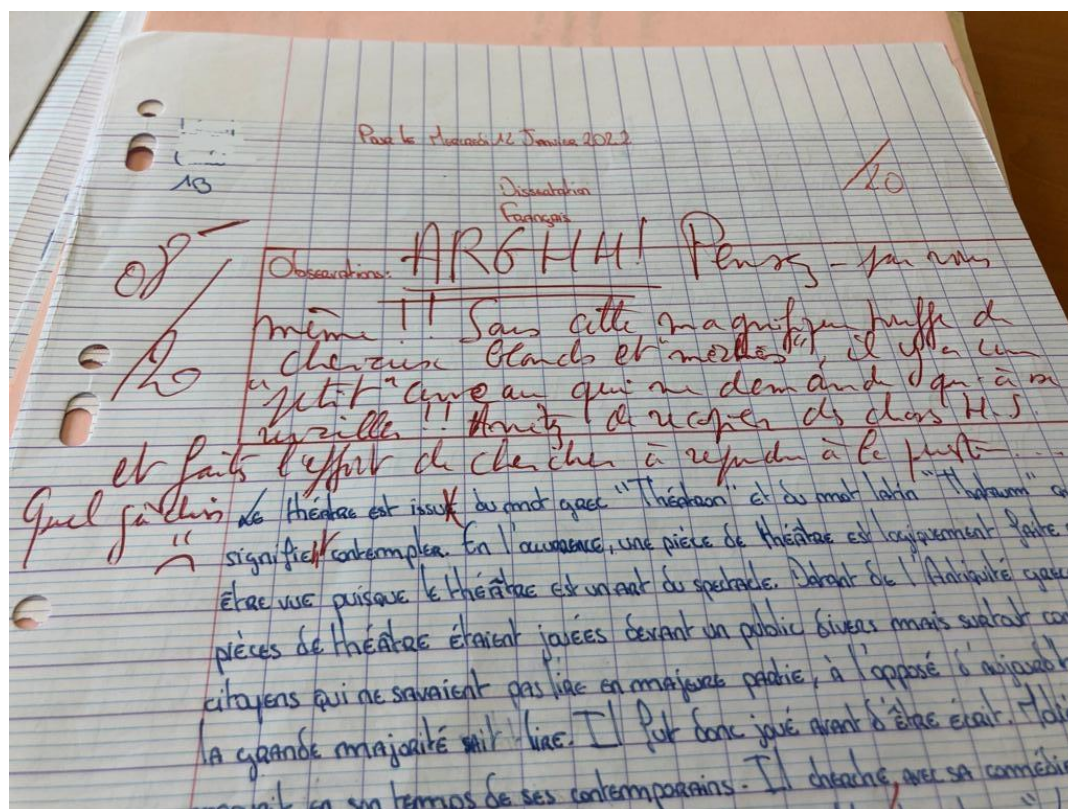 Pour le Mercredi 12 Janvier 2022
13
/20
Dissertation
Français
08-
/20
Observations: ARGHH! Pensez-par vous
même !! Sous cette magnifique touffe de
cheveux blonds et "méchés", il y a un
"petit" cerveau qui ne demande qu'à se
réveiller !! Arrêtez de recopier des choses H.S.
et faites l'effort de chercher à répondre à la question...
Quel gâchis
Le théâtre est issuX du mot grec "Théatron" et du mot latin "Theatrum"
signifient contempler. En l'occurence, une pièce de théâtre est logiquement faite
être vue puisque le théâtre est un art du spectacle. Datant de l'Antiquité
pièces de théâtre étaient jouées devant un public divers mais surtout
citoyens qui ne savaient pas lire en majeure partie, à l'opposé d'aujourd'
la grande majorité sait lire. Il fut donc joué avant d'être écrit.
en son temps de ses contemporains. Il cherche, avec sa comédie